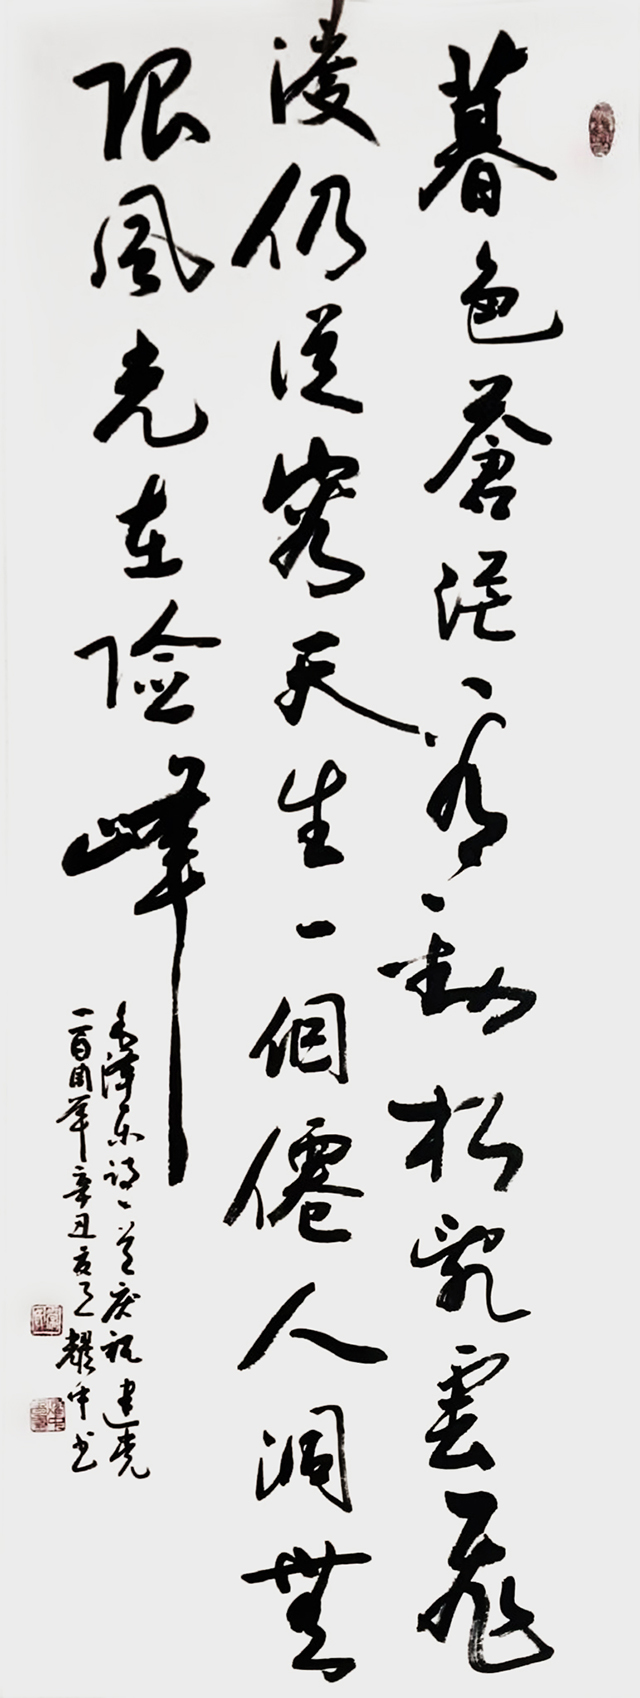 暮色蒼茫看勁松亂雲飛
渡仍從容天生一個僊人洞無
限風光在險峰
毛澤东詩一首庆祝建党
一百周年辛丑夏耀中书